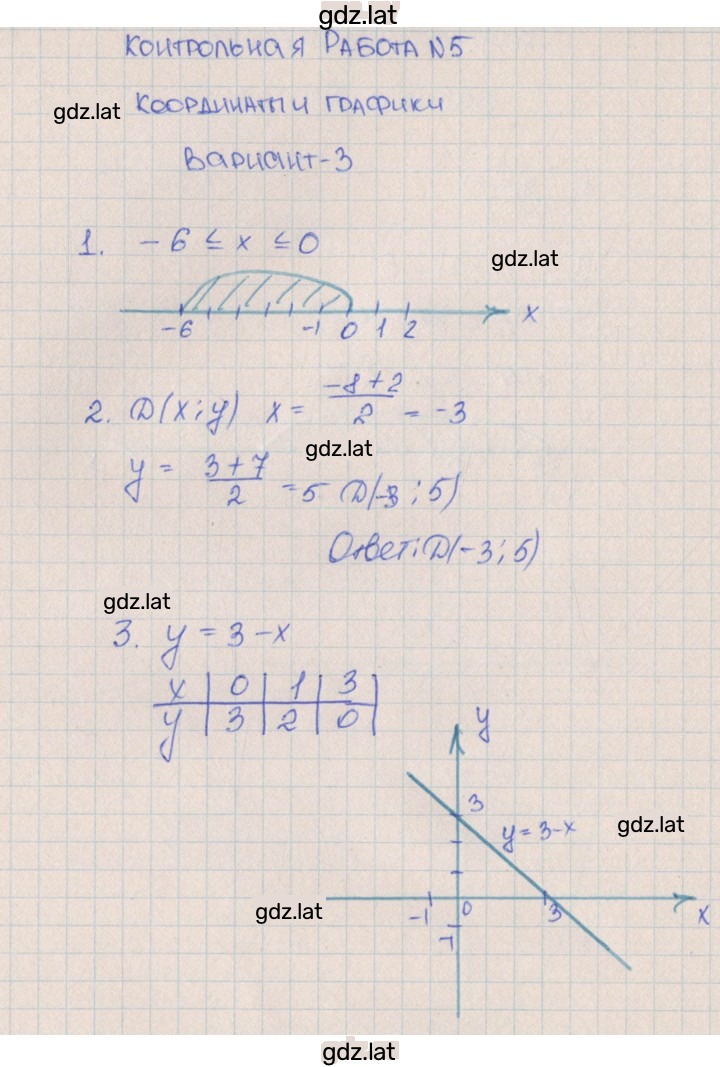 gdz.lat
КОНТРОЛЬНАЯ РАБОТА N5
gdz.lat
КООРДИНАТЫ И ГРАФИКИ
Вариант-3
1. -6 ≤ x ≤ 0
gdz.lat
-6 -1 0 1 2 x
2. D(x; y) x = (-8+2)/2 = -3
gdz.lat
y = (3+7)/2 = 5 D(-3; 5)
Ответ: D(-3; 5)
gdz.lat
3. y = 3-x
x | 0 | 1 | 3 |
y | 3 | 2 | 0 |
y
3
y = 3-x
gdz.lat
gdz.lat
-1 0 3 x
-1
gdz.lat